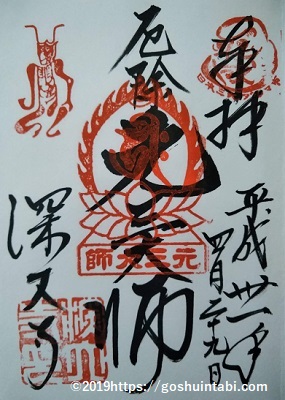 奉拝
平成卅一年
四月二十九日
厄除
元三大師
元三大師
深大寺
©2019https://goshuintabi.com